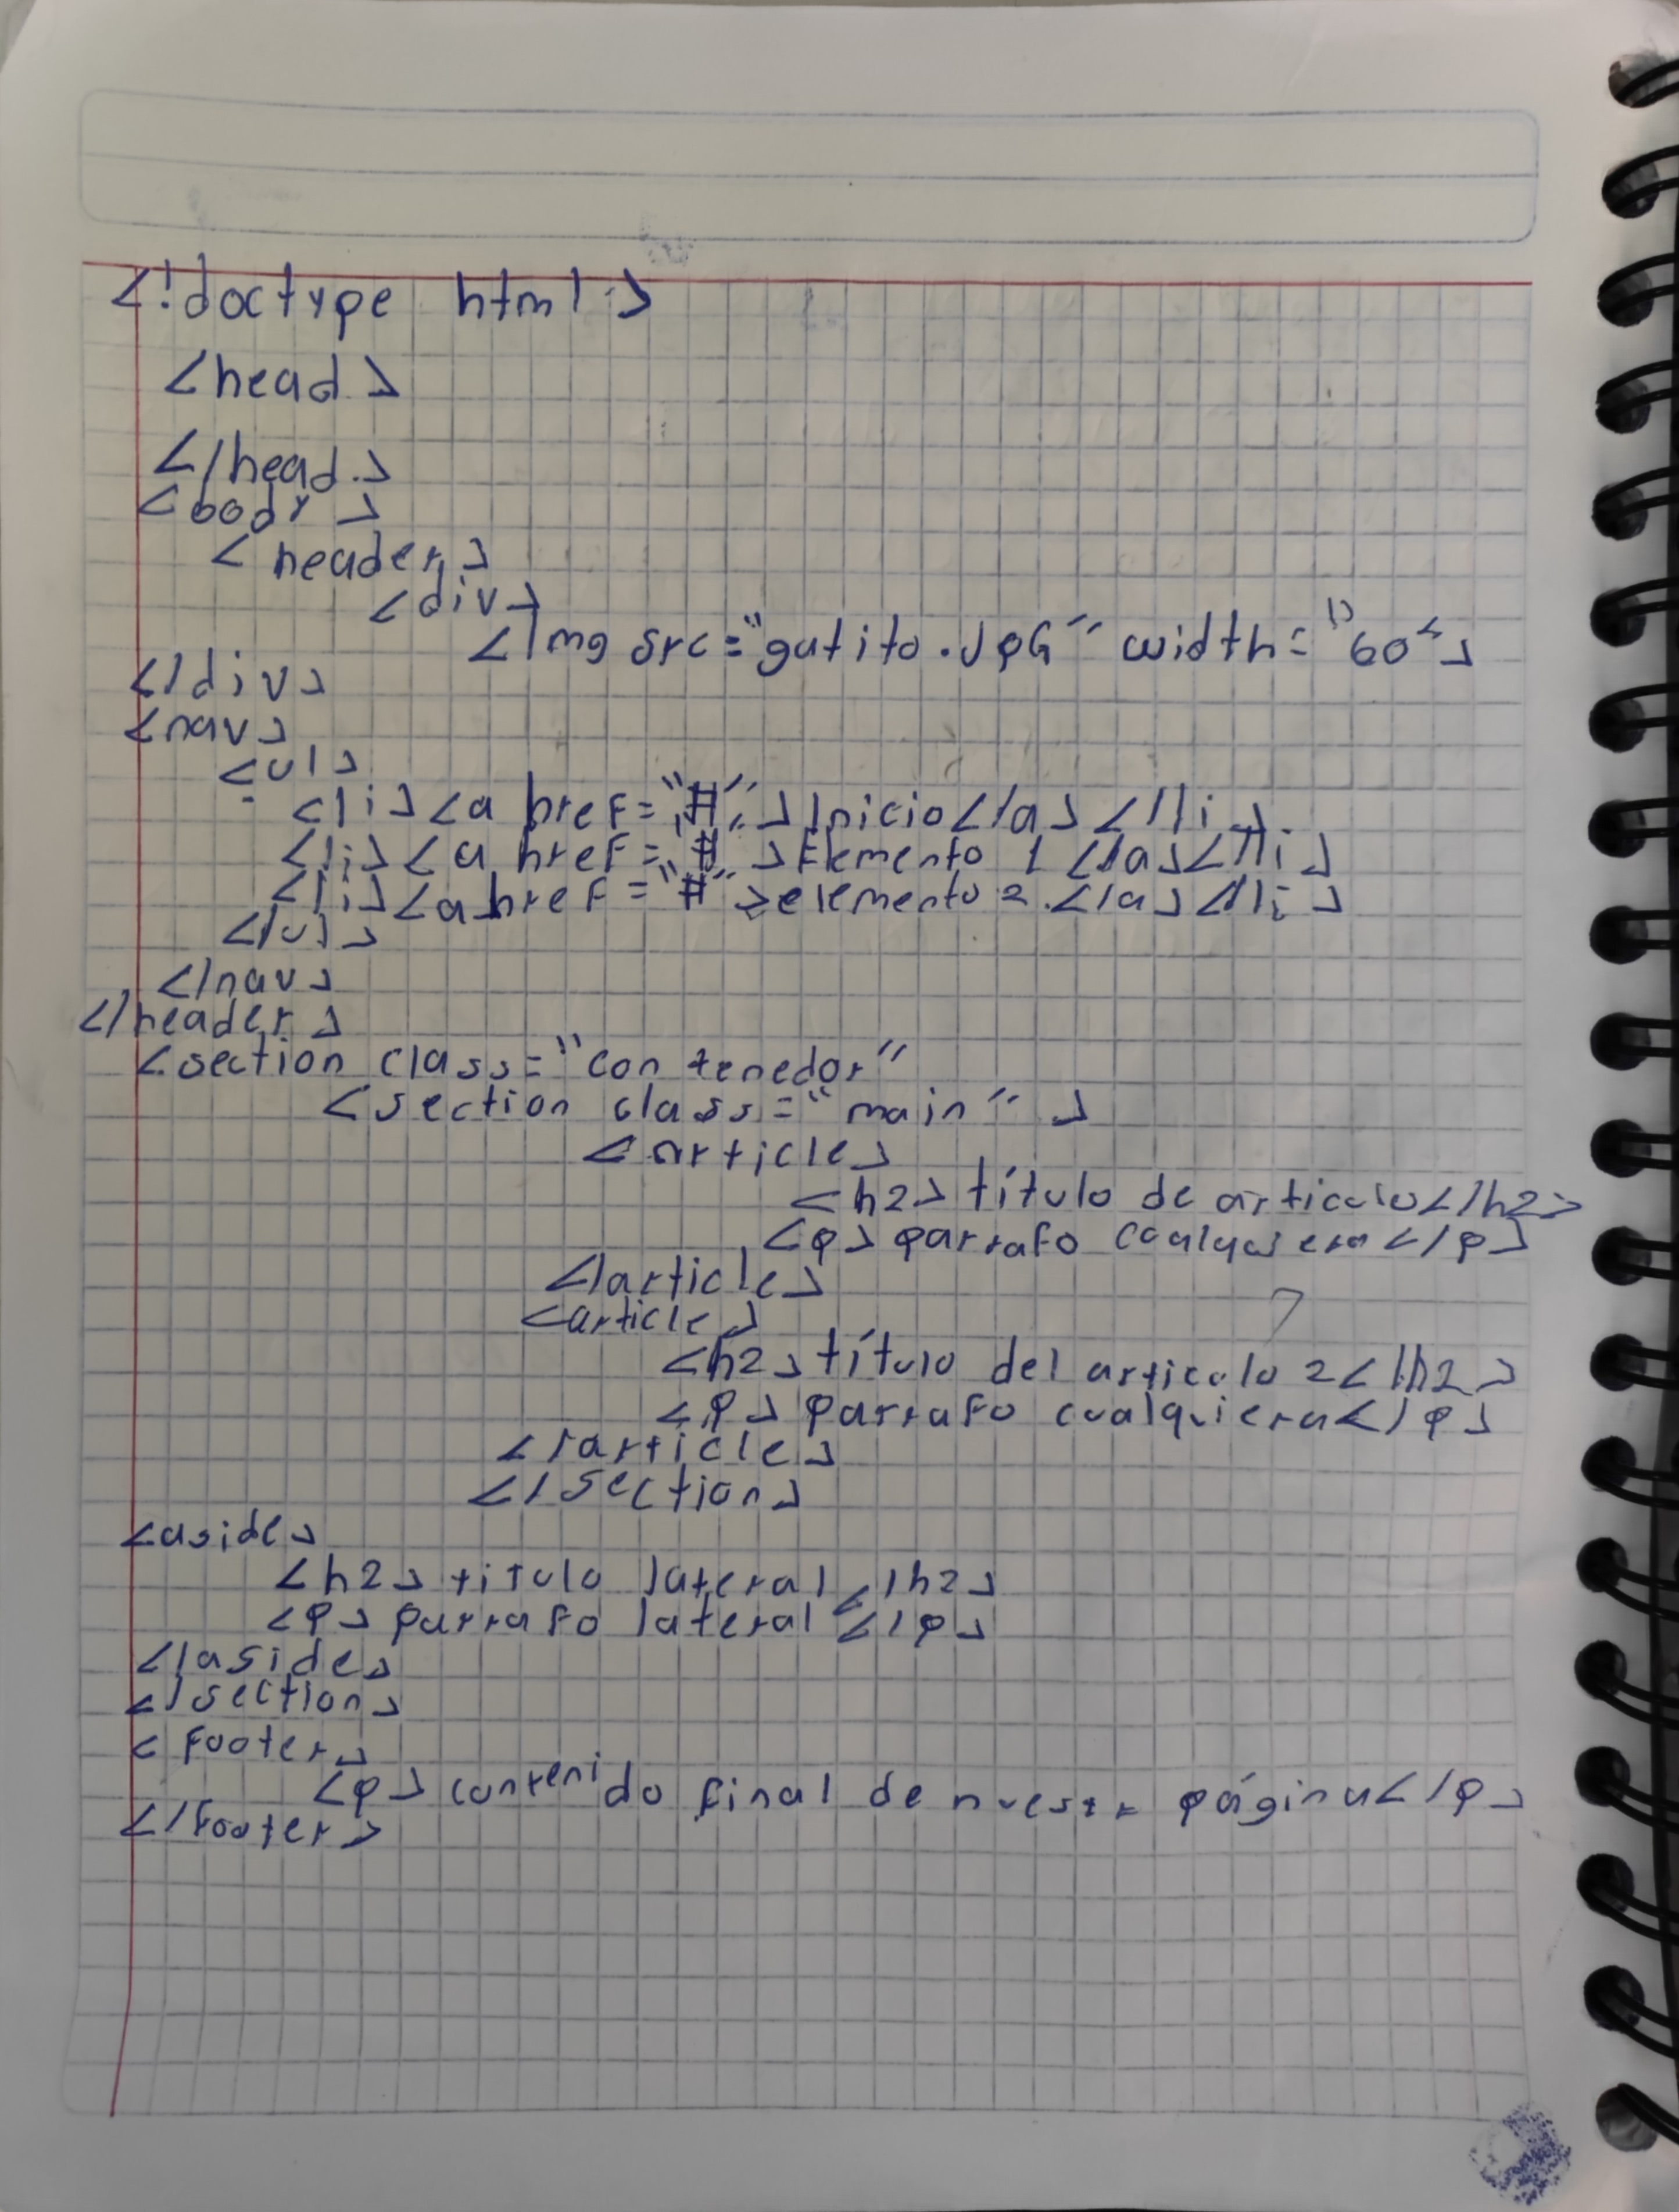 <!doctype html>
<head>
</head>
<body>
<header>
<div>
<Img src="gatito.JpG" width="60">
</div>
<nav>
<ul>
<li><a href="#">Inicio</a></li>
<li><a href="#">Elemento 1</a></li>
<li><a href="#">elemento 2</a></li>
</ul>
</nav>
</header>
<section class="contenedor"
<section class="main">
<article>
<h2>título de articulo</h2>
<p>parrafo cualquiera</p>
</article>
<article>
<h2>título del articolo 2</h2>
<p>parrafo cualquiera</p>
</article>
</section>
<aside>
<h2>titulo lateral</h2>
<p>parrafo lateral</p>
</aside>
</section>
<footer>
<p>contenido final de página</p>
</footer>